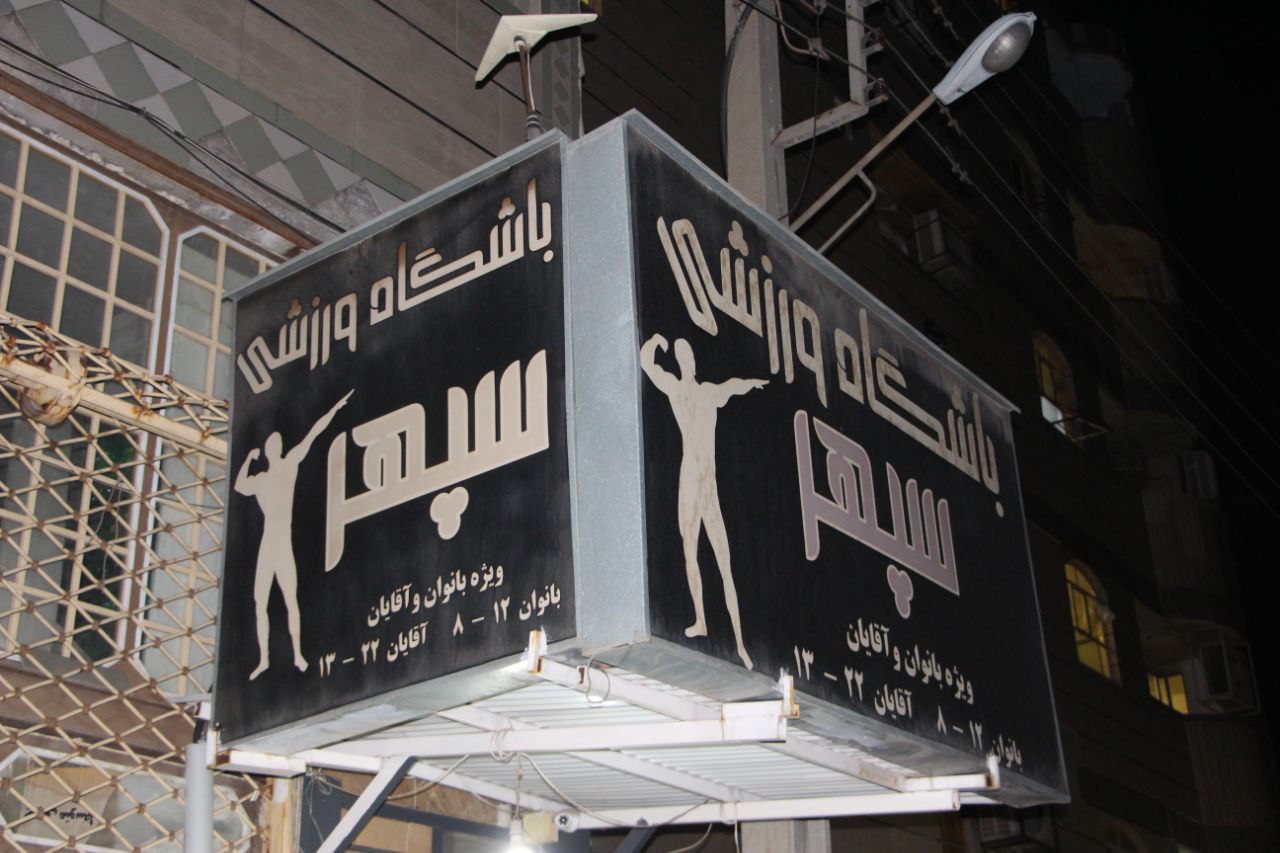 باشگاه ورزشی
سپهر
ویژه بانوان و آقایان
بانوان ۱۲ - ۸ آقایان ۲۲ - ۱۳
باشگاه ورزشی
سپهر
ویژه بانوان و آقایان
بانوان ۱۲ - ۸ آقایان ۲۲ - ۱۳